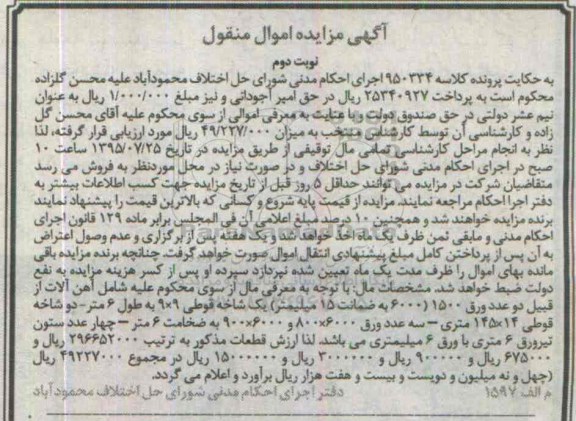 آگهی مزایده اموال منقول
نوبت دوم
به حکایت پرونده کلاسه ۹۵۰۳۳۴ اجرای احکام مدنی شورای حل اختلاف محمودآباد علیه محسن گلزاده
محکوم است به پرداخت ۲۵۳۴۰۹۲۷ ریال در حق امیر آجودانی و نیز مبلغ ۱/۰۰۰/۰۰۰ ریال به عنوان
نیم عشر دولتی در حق صندوق دولت و با عنایت به معرفی اموالی از سوی محکوم علیه آقای محسن گل
زاده و کارشناسی آن توسط کارشناس منتخب به میزان ۴۹/۲۲۷/۰۰۰ ریال مورد ارزیابی قرار گرفته، لذا
نظر به انجام مراحل کارشناسی تمامی مال توقیفی از طریق مزایده در تاریخ ۱۳۹۵/۰۷/۲۵ ساعت ۱۰
صبح در اجرای احکام مدنی شورای حل اختلاف و در صورت نیاز در محل موردنظر به فروش می رسد
متقاضیان شرکت در مزایده می توانند حداقل ۵ روز قبل از تاریخ مزایده جهت کسب اطلاعات بیشتر به
دفتر اجرا احکام مراجعه نمایند. مزایده از قیمت پایه شروع و کسانی که بالاترین قیمت را پیشنهاد نمایند
برنده مزایده خواهند شد و همچنین ۱۰ درصد مبلغ اعلامی آن فی المجلس برابر ماده ۱۲۹ قانون اجرای
احکام مدنی و مابقی ثمن ظرف یک ماه اخذ خواهد شد و یک هفته پس از برگزاری و عدم وصول اعتراض
به آن پس از پرداختن کامل مبلغ پیشنهادی انتقال اموال صورت خواهد گرفت. چنانچه برنده مزایده باقی
مانده بهای اموال را ظرف مدت یک ماه تعیین شده نپردازد سپرده او پس از کسر هزینه مزایده به نفع
دولت ضبط خواهد شد. مشخصات مال: با توجه به معرفی مال از سوی محکوم علیه شامل آهن آلات از
قبیل دو عدد ورق ۱۵۰۰ (۶۰۰۰ به ضمانت ۱۵ میلیمتر) یک شاخه قوطی ۹×۹ به طول ۶ متر- دو شاخه
قوطی ۱۴×۱۴۵ متری – سه عدد ورق ۶۰۰۰×۸۰۰ و ۶۰۰۰×۹۰۰ به ضخامت ۶ متر – چهار عدد ستون
تیرورق ۶ متری با ورق ۶ میلیمتری می باشد. لذا ارزش قطعات مذکور به ترتیب ۲۹۶۶۵۲۰۰۰ ریال و
۶۷۵۰۰۰ ریال و ۹۰۰۰۰۰ ریال و ۳۰۰۰۰۰۰ ریال و ۱۵۰۰۰۰۰۰ ریال در مجموع ۴۹۲۲۷۰۰۰ ریال
(چهل و نه میلیون و دویست و بیست و هفت هزار ریال برآورد و اعلام می گردد.
م الف ۱۵۹۷ دفتر اجرای احکام مدنی شورای حل اختلاف محمود آباد